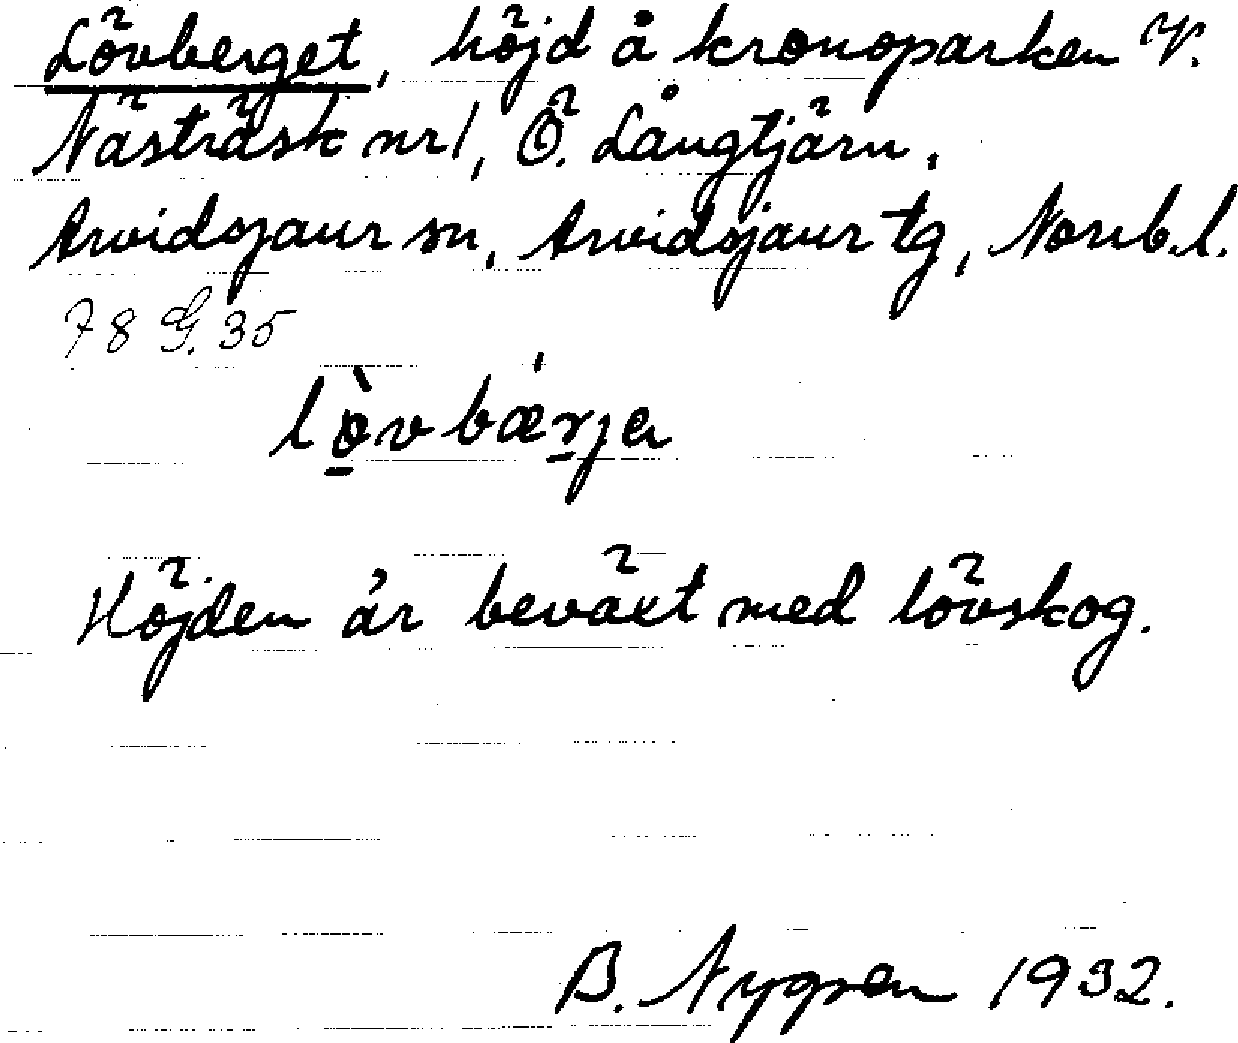 Lövberget, höjd å kronoparken V.
Nästräsk nr 1, Ö. Långtjärn,
Arvidsjaur sn, Arvidsjaur tg, Norrb.l.
78 G. 35
lò̠vbǽr̠ja
Höjden är beväxt med lövskog.
B. Nygren 1932.